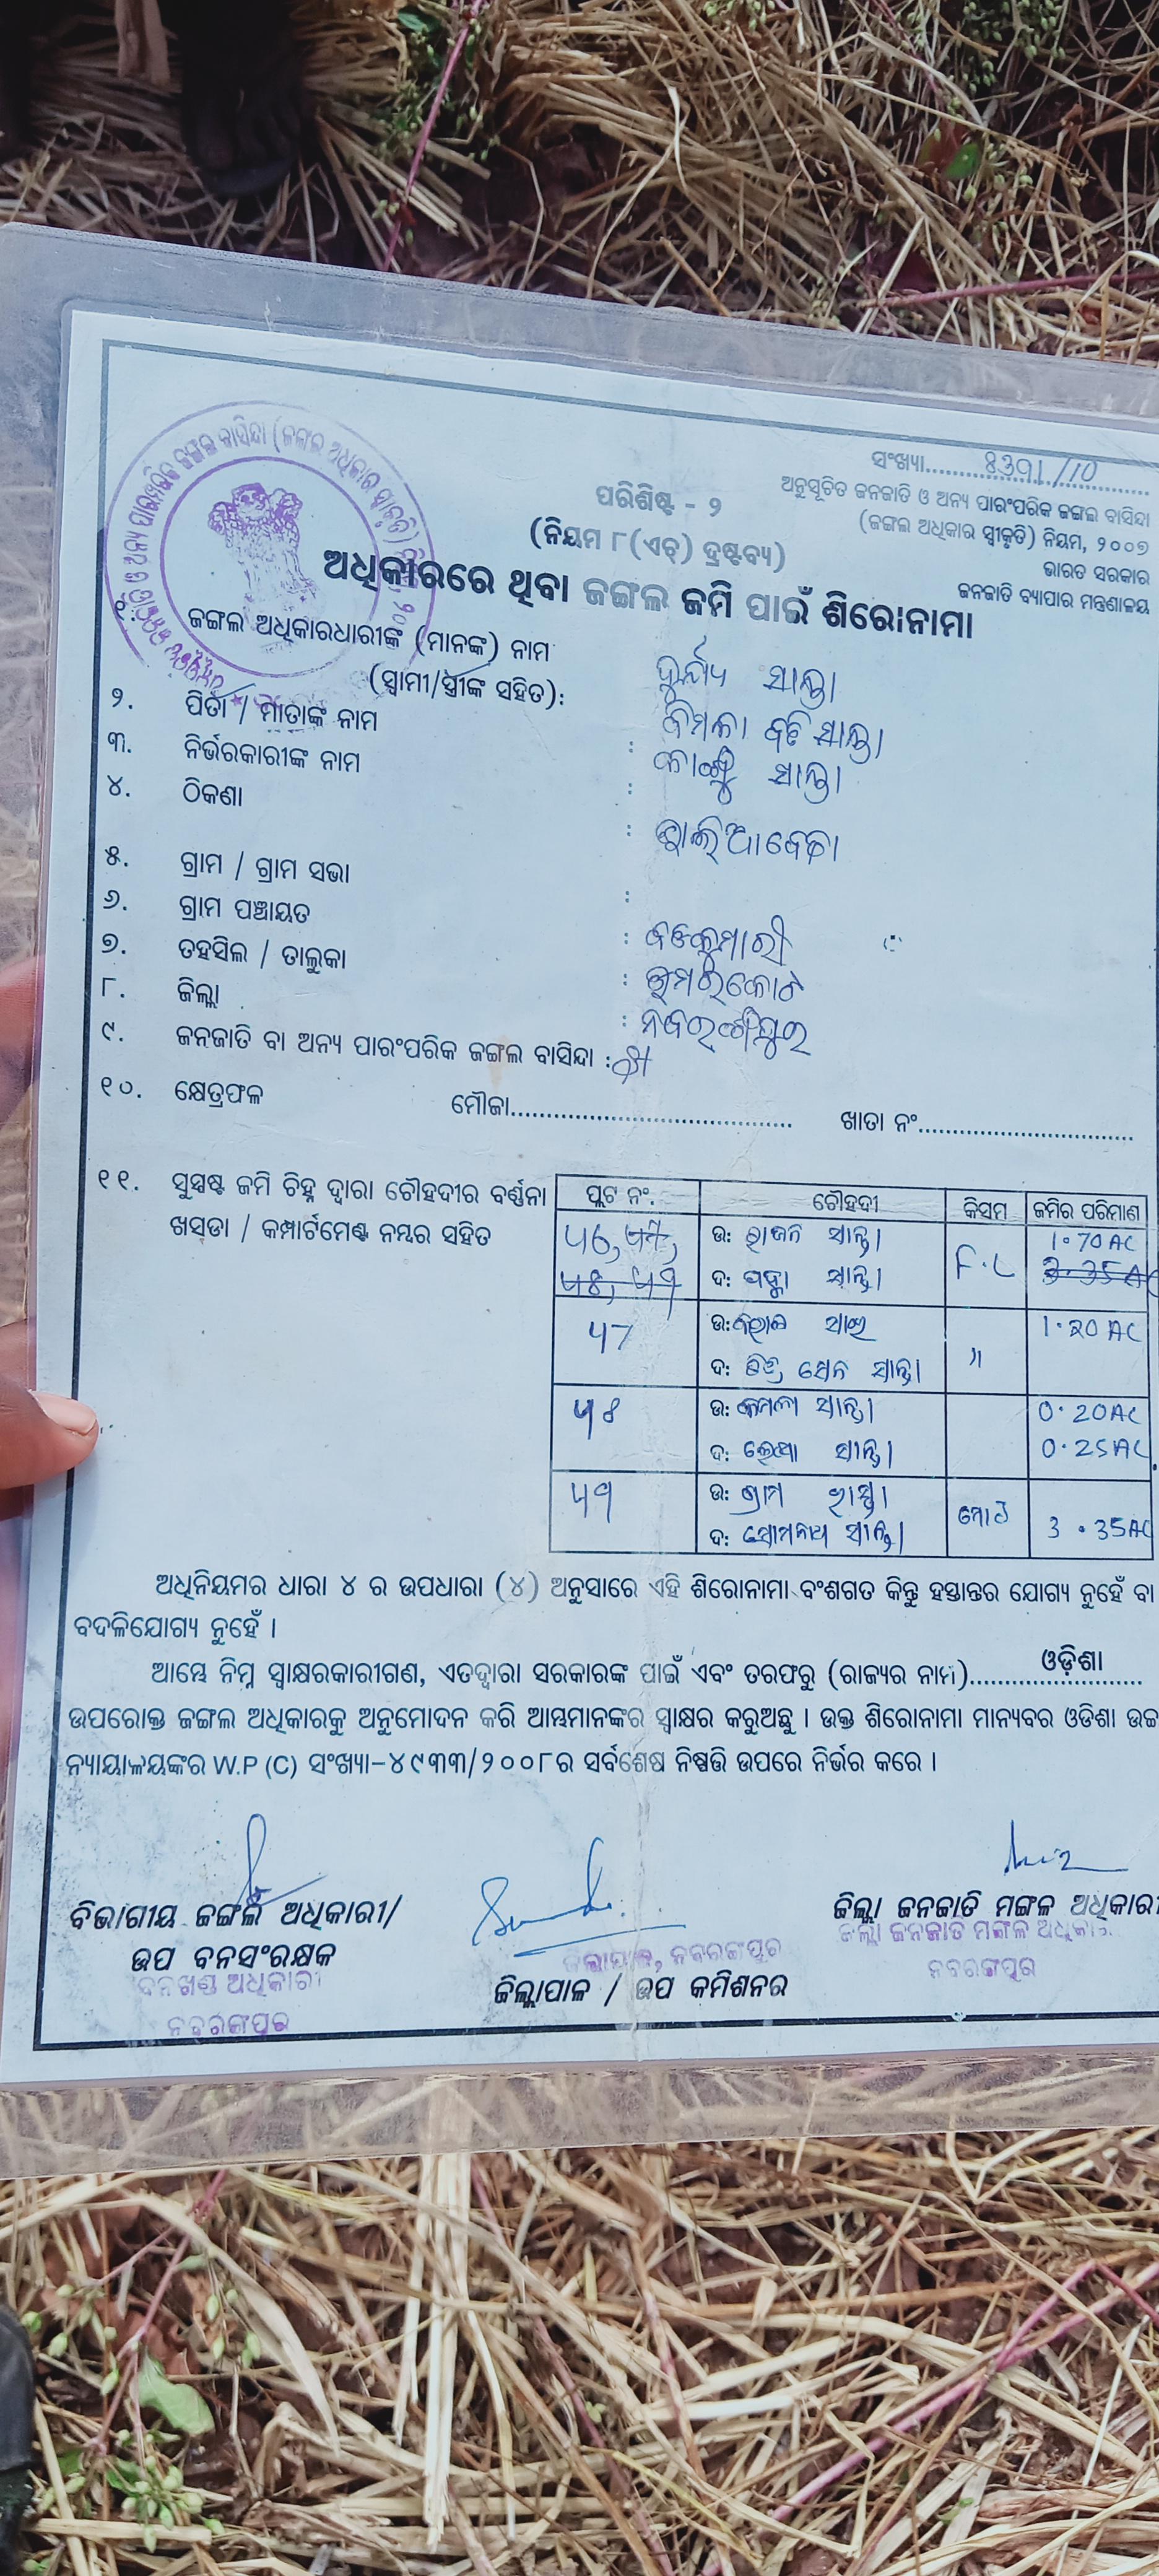 ସଂଖ୍ୟା.......... /10
ଅନୁସୂଚିତ ଜନଜାତି ଓ ଅନ୍ୟ ପାରଂପରିକ ଜଙ୍ଗଲ ବାସିନ୍ଦା
(ଜଙ୍ଗଲ ଅଧିକାର ସ୍ୱୀକୃତି) ନିୟମ, ୨୦୦୭
ଭାରତ ସରକାର
ଜନଜାତି ବ୍ୟାପାର ମନ୍ତ୍ରଣାଳୟ
ପରିଶିଷ୍ଟ - ୨
(ନିୟମ ୮(ଏଚ୍) ଦ୍ରଷ୍ଟବ୍ୟ)
ଅଧିକାରରେ ଥିବା ଜଙ୍ଗଲ ଜମି ପାଇଁ ଶିରୋନାମା
୧. ଜଙ୍ଗଲ ଅଧିକାରଧାରୀଙ୍କ (ମାନଙ୍କ) ନାମ
(ସ୍ୱାମୀ/ସ୍ତ୍ରୀଙ୍କ ସହିତ): ସାନ୍ତା
୨. ପିତା / ମାତାଙ୍କ ନାମ
୩. ନିର୍ଭରକାରୀଙ୍କ ନାମ : ସାନ୍ତା
୪. ଠିକଣା :
୫. ଗ୍ରାମ / ଗ୍ରାମ ସଭା :
୬. ଗ୍ରାମ ପଞ୍ଚାୟତ :
୭. ତହସିଲ / ତାଲୁକା : ଉମରକୋଟ
୮. ଜିଲ୍ଲା : ନବରଙ୍ଗପୁର
୯. ଜନଜାତି ବା ଅନ୍ୟ ପାରଂପରିକ ଜଙ୍ଗଲ ବାସିନ୍ଦା :
୧୦. କ୍ଷେତ୍ରଫଳ ମୌଜା.......... ଖାତା ନଂ..........
୧୧. ସୁସ୍ପଷ୍ଟ ଜମି ଚିହ୍ନ ଦ୍ୱାରା ଚୌହଦୀର ବର୍ଣ୍ଣନା
ଖସଡା / କମ୍ପାର୍ଟମେଣ୍ଟ ନମ୍ବର ସହିତ
ପ୍ଲଟ ନଂ. ଚୌହଦୀ କିସମ ଜମିର ପରିମାଣ
ଉ: ସାନ୍ତା F.L 1.70 AC
ଦ: ସାନ୍ତା 3.35 AC
ଉ: 1.20 AC
ଦ: ସାନ୍ତା "
ଉ: କମଳା ସାନ୍ତା 0.20 AC
ଦ: ସାନ୍ତା 0.25 AC
ଉ: ଗ୍ରାମ ରାସ୍ତା
ଦ: ସୋମନାଥ ସାନ୍ତା ମୋଟ 3.35 AC
ଅଧିନିୟମର ଧାରା ୪ ର ଉପଧାରା (୪) ଅନୁସାରେ ଏହି ଶିରୋନାମା ବଂଶଗତ କିନ୍ତୁ ହସ୍ତାନ୍ତର ଯୋଗ୍ୟ ନୁହେଁ ବା
ବଦଳିଯୋଗ୍ୟ ନୁହେଁ ।
ଆମ୍ଭେ ନିମ୍ନ ସ୍ୱାକ୍ଷରକାରୀଗଣ, ଏତଦ୍ୱାରା ସରକାରଙ୍କ ପାଇଁ ଏବଂ ତରଫରୁ (ରାଜ୍ୟର ନାମ)..........ଓଡ଼ିଶା
ଉପରୋକ୍ତ ଜଙ୍ଗଲ ଅଧିକାରକୁ ଅନୁମୋଦନ କରି ଆମ୍ଭମାନଙ୍କର ସ୍ୱାକ୍ଷର କରୁଅଛୁ । ଉକ୍ତ ଶିରୋନାମା ମାନ୍ୟବର ଓଡିଶା ଉଚ୍ଚ
ନ୍ୟାୟାଳୟଙ୍କର W.P (C) ସଂଖ୍ୟା-୪୯୩୩/୨୦୦୮ର ସର୍ବଶେଷ ନିଷ୍ପତ୍ତି ଉପରେ ନିର୍ଭର କରେ ।
ବିଭାଗୀୟ ଜଙ୍ଗଲ ଅଧିକାରୀ/
ଉପ ବନସଂରକ୍ଷକ
ବନଖଣ୍ଡ ଅଧିକାରୀ
ନବରଙ୍ଗପୁର
ଜିଲ୍ଲାପାଳ, ନବରଙ୍ଗପୁର
ଜିଲ୍ଲାପାଳ / ଉପ କମିଶନର
ଜିଲ୍ଲା ଜନଜାତି ମଙ୍ଗଳ ଅଧିକାରୀ
ଜିଲ୍ଲା ଜନଜାତି ମଙ୍ଗଳ ଅଧିକାରୀ
ନବରଙ୍ଗପୁର